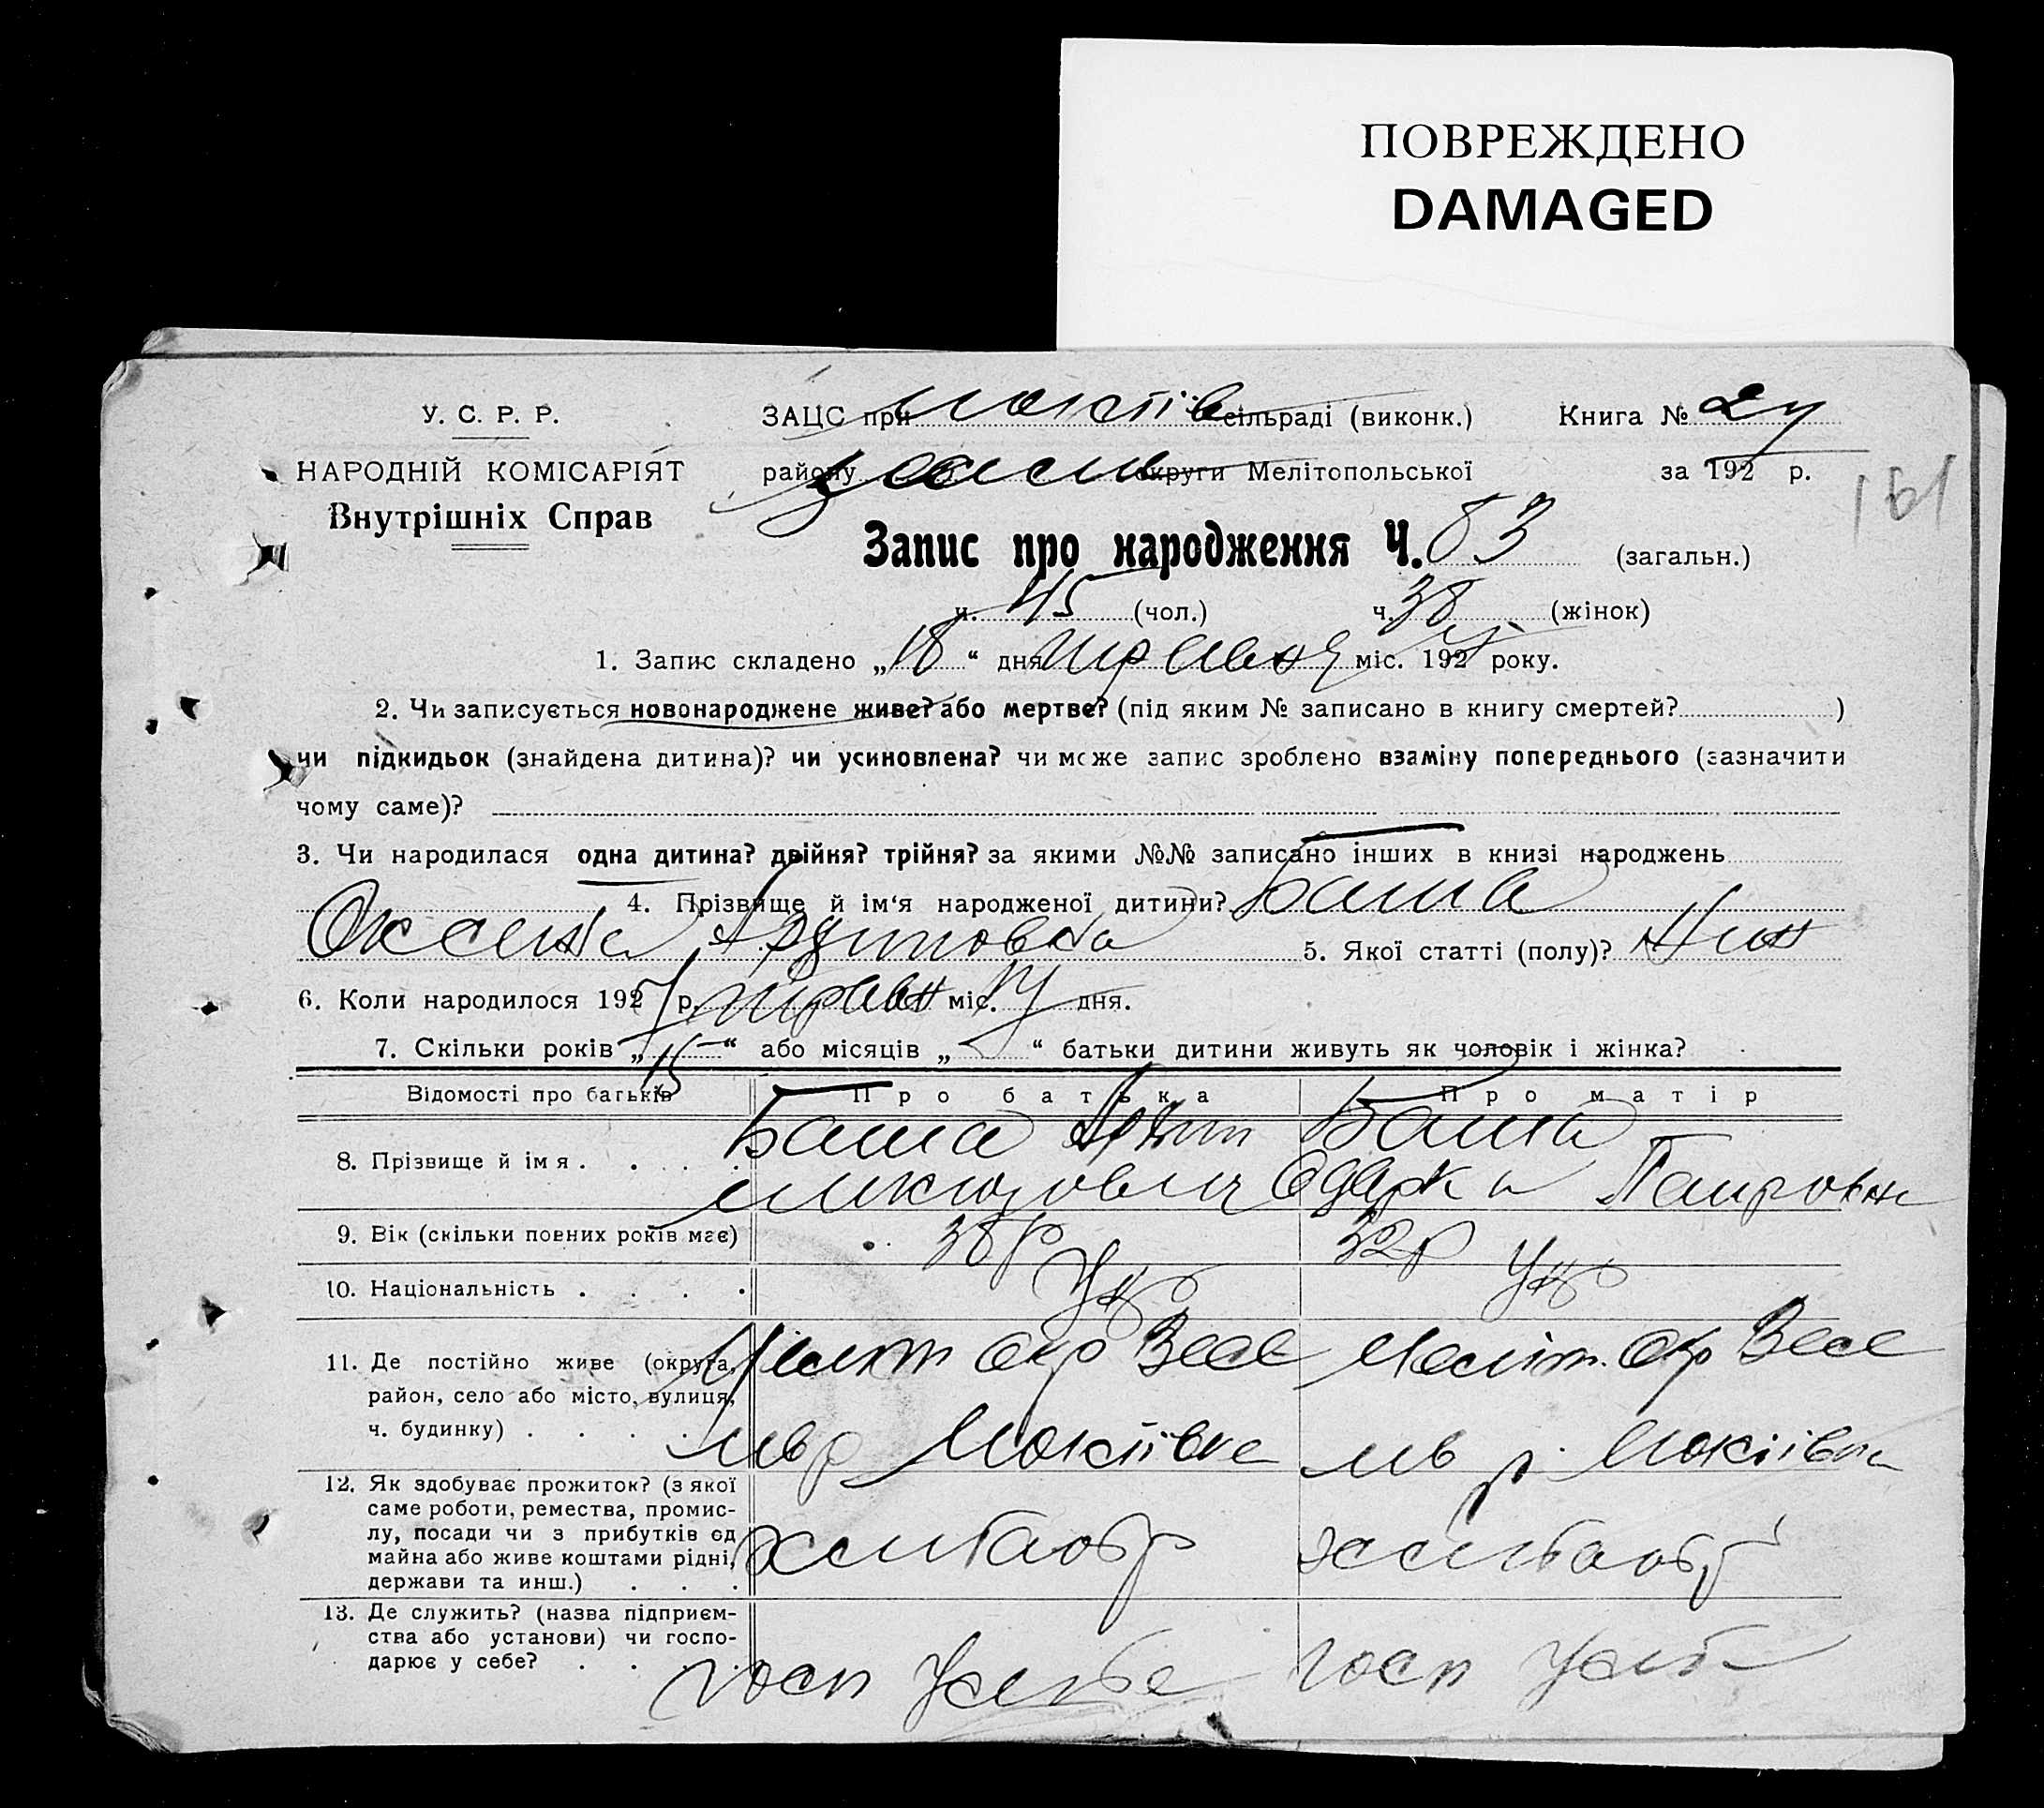 ПОВРЕЖДЕНО
DAMAGED
У. С. Р. Р.
НАРОДНІЙ КОМІСАРІЯТ
Внутрішніх Справ
ЗАЦС при Мокіїв сільраді (виконк.)
Книга №
району округи Мелітопольської
за 192 р.
161
Запис про народження Ч. 83 (загальн.)
ч. 45 (чол.) ч. 38 (жінок)
1. Запис складено „18“ дня травня міс. 192 року.
2. Чи записується новонароджене живе? або мертве? (під яким № записано в книгу смертей? )
чи підкидьок (знайдена дитина)? чи усиновлена? чи може запис зроблено взаміну попереднього (зазначити
чому саме)?
3. Чи народилася одна дитина? двійня? трійня? за якими №№ записано інших в книзі народжень
4. Прізвище й ім‘я народженої дитини? Баша
Оксана 5. Якої статті (полу)? Жін
6. Коли народилося 1927 р. травн міс. 17 дня.
7. Скільки років „15“ або місяців „ “ батьки дитини живуть як чоловік і жінка?
Відомості про батьків Про батька Про матір
8. Прізвище й імя . . . . Баша Баша
Одарка
9. Вік (скільки повних років має) 38 р 32 р
10. Національність . . . . Укр Укр
11. Де постійно живе (округа, Меліт Окр Весе Меліт. Окр Весе
район, село або місто, вулиця,
ч. будинку) . . . . лів р Мокіївка лів р. Мокіївка
12. Як здобуває прожиток? (з якої
саме роботи, ремества, промис-
лу, посади чи з прибутків од хлібороб хлібороб
майна або живе коштами рідні,
держави та инш.) . . .
13. Де служить? (назва підприєм-
ства або установи) чи госпо-
дарює у себе? . . . . госп у себе госп у себе